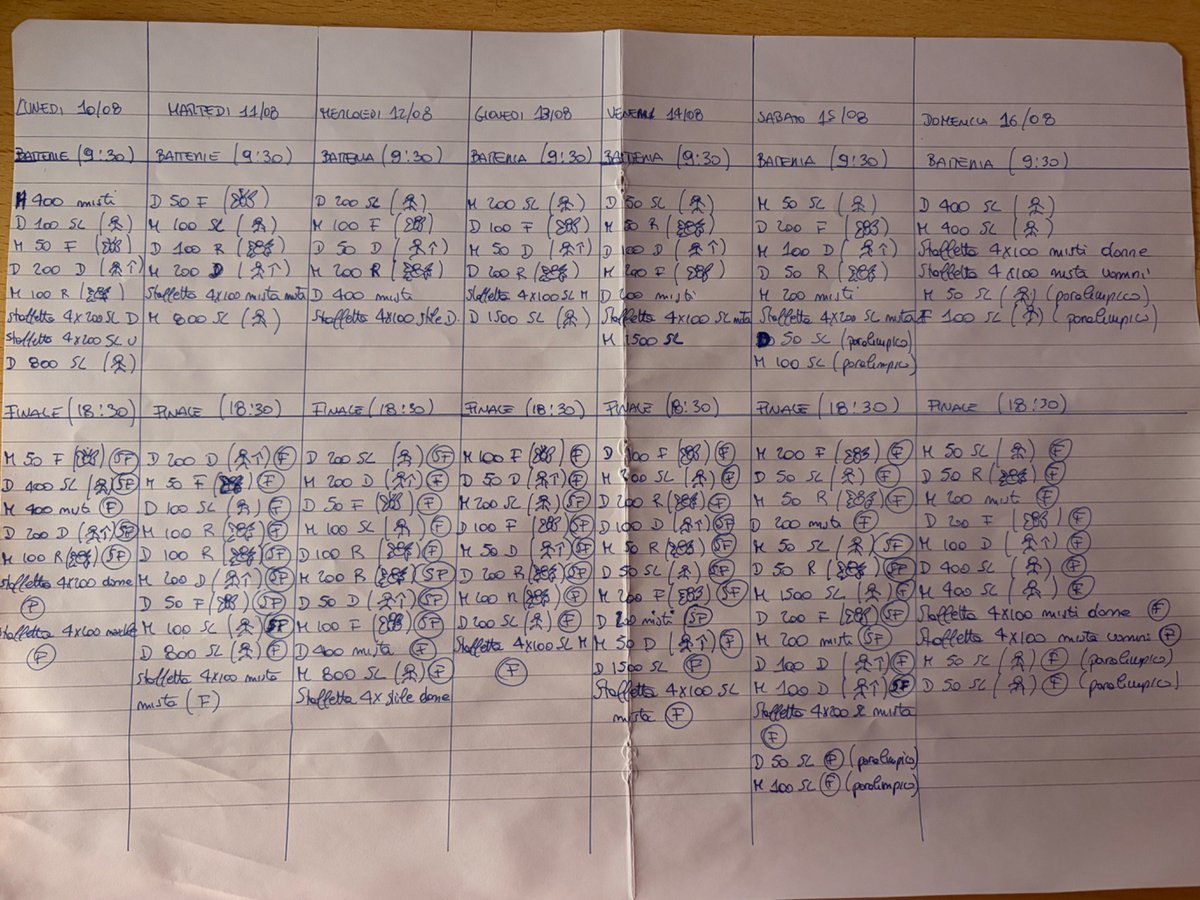 LUNEDI 10/08
BATTERIE (9:30)
M 400 misti
D 100 SL
M 50 F
D 200 D
M 100 R
staffetta 4x200 SL D
staffetta 4x200 SL U
D 800 SL
FINALE (18:30)
M 50 F SF
D 400 SL SF
M 400 misti F
D 200 D SF
M 100 R SF
staffetta 4x200 donne
F
staffetta 4x100 maschi
F
MARTEDI 11/08
BATTERIE (9:30)
D 50 F
M 100 SL
D 100 R
M 200 D
staffetta 4x100 mista mista
M 800 SL
FINALE (18:30)
D 200 D F
M 50 F F
D 100 SL F
M 100 R F
D 100 R SF
M 200 D SF
D 50 F SF
M 100 SL SF
D 800 SL F
staffetta 4x100 mista
mista (F)
MERCOLEDI 12/08
BATTERIA (9:30)
D 200 SL
M 100 F
D 50 D
M 200 R
D 400 mista
staffetta 4x100 stile D.
FINALE (18:30)
D 200 SL SF
M 200 D F
D 50 F F
M 100 SL F
D 100 R F
M 200 R SF
D 50 D SF
M 100 F SF
D 400 mista F
M 800 SL F
Staffetta 4x stile donne
GIOVEDI 13/08
BATTERIA (9:30)
M 200 SL
D 100 F
M 50 D
D 200 R
staffetta 4x100 SL M
D 1500 SL
FINALE (18:30)
M 100 F F
D 50 D F
M 200 SL SF
D 100 F SF
M 50 D SF
D 200 R SF
M 200 R F
D 200 SL F
staffetta 4x100 SL M
F
VENERDI 14/08
BATTERIA (9:30)
D 50 SL
M 50 R
D 100 D
M 200 F
D 200 misti
staffetta 4x100 SL mista
M 1500 SL
FINALE (18:30)
D 100 F F
M 200 SL F
D 200 R F
D 100 D SF
M 50 R SF
D 50 SL SF
M 200 F SF
D 200 misti SF
M 50 D F
D 1500 SL F
Staffetta 4x100 SL
mista F
SABATO 15/08
BATTERIA (9:30)
M 50 SL
D 200 F
M 100 D
D 50 R
M 200 misti
Staffetta 4x200 SL mista
D 50 SL (paralimpico)
M 100 SL (paralimpico)
FINALE (18:30)
M 200 F F
D 50 SL F
M 50 R F
D 200 mista F
M 50 SL SF
D 50 R SF
M 1500 SL F
D 200 F SF
M 200 misti SF
D 100 D F
M 100 D SF
Staffetta 4x200 SL mista
F
D 50 SL F (paralimpico)
M 100 SL F (paralimpico)
DOMENICA 16/08
BATTERIA (9:30)
D 400 SL
M 400 SL
Staffetta 4x100 misti donne
Staffetta 4x100 mista uomini
M 50 SL (paralimpico)
F 100 SL (paralimpico)
FINALE (18:30)
M 50 SL F
D 50 R F
M 200 misti F
D 200 F F
M 100 D F
D 400 SL F
M 400 SL F
Staffetta 4x100 misti donne F
Staffetta 4x100 mista uomini F
M 50 SL F (paralimpico)
D 50 SL F (paralimpico)